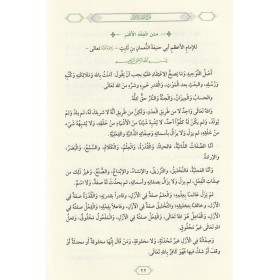 متن الفقه الأكبر
للإمام الأعظم أبي حنيفة النعمان بن ثابت - رحمه الله تعالى -
أصل التوحيد وما يصح الاعتقاد عليه يجب أن يقول: آمنت بالله وملائكته وكتبه
ورسله، والبعث بعد الموت، والقدر خيره وشره من الله تعالى،
والحساب والميزان، والجنة والنار حق كله.
والله تعالى واحد لا من طريق العدد، ولكن من طريق أنه لا شريك له، لم يلد ولم
يولد، ولم يكن له كفوا أحد، لا يشبه شيئا من الأشياء من خلقه، ولا يشبهه شيء
من خلقه، لم يزل ولا يزال بأسمائه وصفاته الذاتية والفعلية.
أما الذاتية: فالحياة، والقدرة، والعلم، والكلام، والسمع، والبصر،
والإرادة.
وأما الفعلية: فالتخليق، والترزيق، والإنشاء، والإبداع، والصنع، وغير ذلك من
صفات الفعل، لم يزل ولا يزال بصفاته وأسمائه، لم يحدث له صفة ولا اسم.
لم يزل عالما بعلمه، والعلم صفة في الأزل، وقادرا بقدرته، والقدرة صفة في
الأزل، وخالقا بتخليقه، والتخليق صفة في الأزل، وفاعلا بفعله، والفعل صفة في
الأزل، والفاعل هو الله تعالى، والفعل صفة في الأزل، والمفعول مخلوق، وفعل
الله تعالى غير مخلوق.
وصفاته في الأزل غير محدثة ولا مخلوقة، فمن قال إنها مخلوقة أو محدثة أو
٢٢